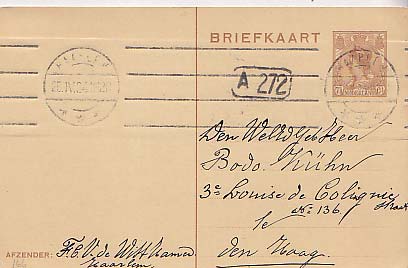 BRIEFKAART
HAARLEM
A 272
Den WelEd Geb Heer
Bodo Kühn
3e Louise de Colignie
straat
No 136
te
den Haag.
AFZENDER: F.C.V. de Witt Hamer
Haarlem